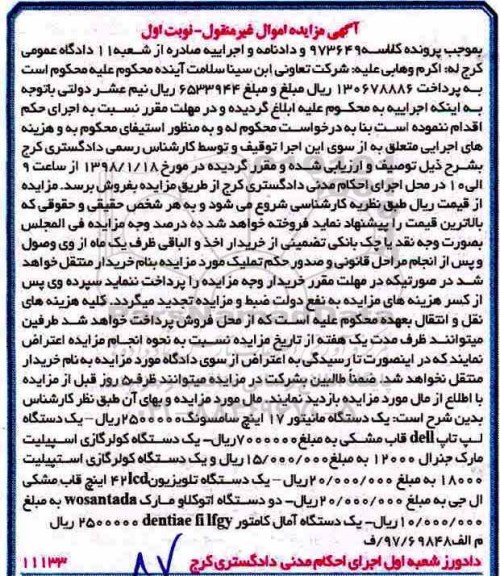 آگهی مزایده اموال غیرمنقول- نوبت اول
بموجب پرونده کلاسه ۹۷۳۶۴۹ و دادنامه و اجراییه صادره از شعبه ۱۱ دادگاه عمومی
کرج له: اکرم وهابی علیه: شرکت تعاونی ابن سینا سلامت آینده محکوم علیه محکوم است
به پرداخت ۱۳۰۶۷۸۸۸۶ ریال مبلغ و مبلغ ۶۵۳۳۹۴۴ ریال نیم عشر دولتی باتوجه
به اینکه اجراییه به محکوم علیه ابلاغ گردیده و در مهلت مقرر نسبت به اجرای حکم
اقدام ننموده است بنا به درخواست محکوم له و به منظور استیفای محکوم به و هزینه
های اجرایی متعلق به از سوی این اجرا توقیف و توسط کارشناس رسمی دادگستری کرج
بشرح ذیل توصیف و ارزیابی شده و مقرر گردیده در مورخ ۱۳۹۸/۱/۱۸ از ساعت ۹
الی ۱۰ در محل اجرای احکام مدنی دادگستری کرج از طریق مزایده بفروش برسد. مزایده
از قیمت ریال طبق نظریه کارشناسی شروع می شود و به هر شخص حقیقی و حقوقی که
بالاترین قیمت را پیشنهاد نماید فروخته خواهد شد ده درصد وجه مزایده فی المجلس
بصورت وجه نقد یا چک بانکی تضمینی از خریدار اخذ و الباقی ظرف یک ماه از وی وصول
و پس از انجام مراحل قانونی و صدور حکم تملیک مورد مزایده بنام خریدار منتقل خواهد
شد در صورتیکه در مهلت مقرر خریدار وجه مزایده را پرداخت ننماید سپرده وی پس
از کسر هزینه های مزایده به نفع دولت ضبط و مزایده تجدید میگردد. کلیه هزینه های
نقل و انتقال بعهده محکوم علیه است که از محل فروش پرداخت خواهد شد طرفین
میتوانند ظرف مدت یک هفته از تاریخ مزایده نسبت به نحوه انجام مزایده اعتراض
نمایند که در اینصورت تا رسیدگی به اعتراض از سوی دادگاه مورد مزایده به نام خریدار
منتقل نخواهد شد. ضمناً طالبین بشرکت در مزایده میتوانند ظرف ۵ روز قبل از مزایده
با اطلاع از مال مورد مزایده بازدید نمایند. مال مورد مزایده و بهای آن طبق نظر کارشناس
بدین شرح است: یک دستگاه مانیتور ۱۷ اینچ سامسونگ ۲۵۰۰۰۰۰ریال – یک دستگاه
لپ تاپ dell قاب مشکی به مبلغ ۷۰۰۰۰۰۰ریال- یک دستگاه کولرگازی اسپیلیت
مارک جنرال ۱۲۰۰۰ به مبلغ ۱۵/۰۰۰/۰۰۰ریال و یک دستگاه کولرگازی اسپیلیت
۱۸۰۰۰ به مبلغ ۲۰/۰۰۰/۰۰۰ریال – یک دستگاه تلویزیون ۴۲lcd اینچ قاب مشکی
ال جی به مبلغ ۲۰/۰۰۰/۰۰۰ریال- دو دستگاه اتوکلاو مارک wosantada به مبلغ
۱۰/۰۰۰/۰۰۰ریال- یک دستگاه آمال کامتور dentiae fi lfgy ۲۵۰۰۰۰۰ ریال
م الف ۹۷/۶۹۸۴۸/ف
دادورز شعبه اول اجرای احکام مدنی دادگستری کرج ۱۱۱۳۳
۸۷